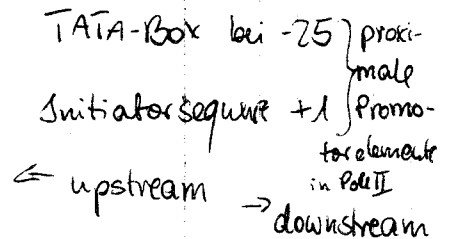 TATA-Box bei -25
Initiatorsequenz +1
proxi-
male
Promo-
torelemente
in Pol II
← upstream
→ downstream